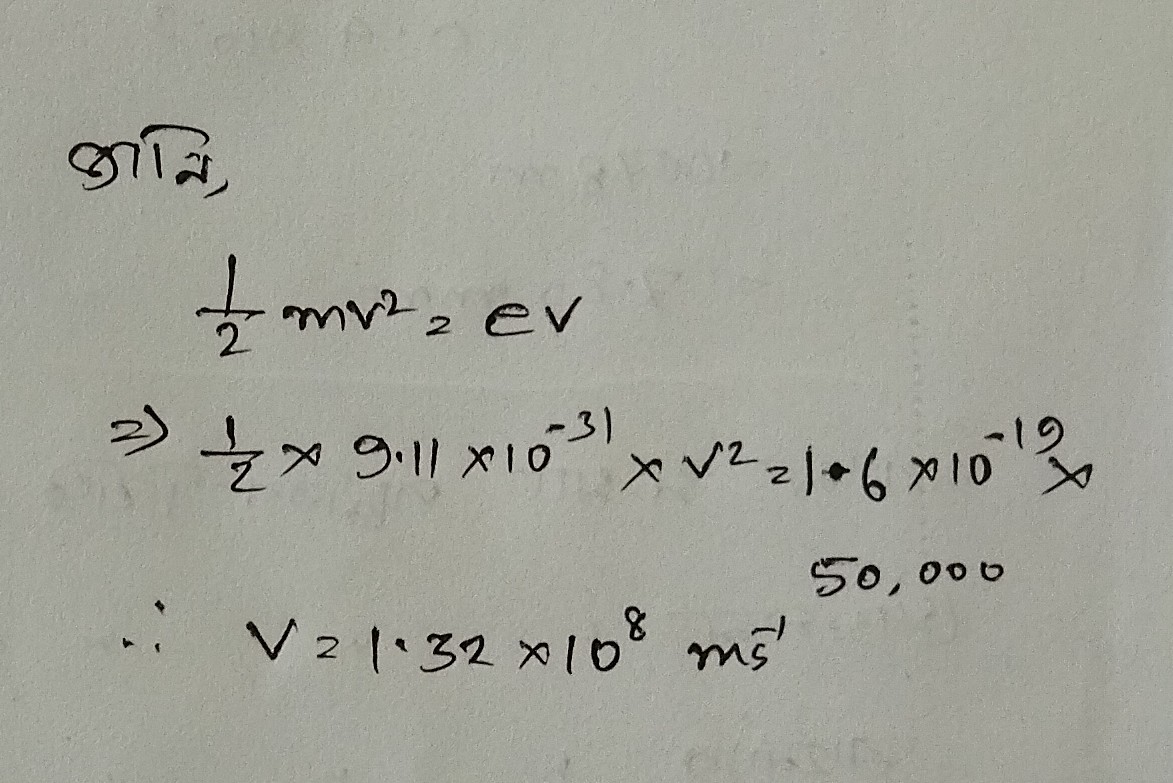 জানি,
1/2 mv² = eV
⇒ 1/2 × 9.11 × 10⁻³¹ × v² = 1.6 × 10⁻¹⁹ ×
50,000
∴ V = 1.32 × 10⁸ ms⁻¹